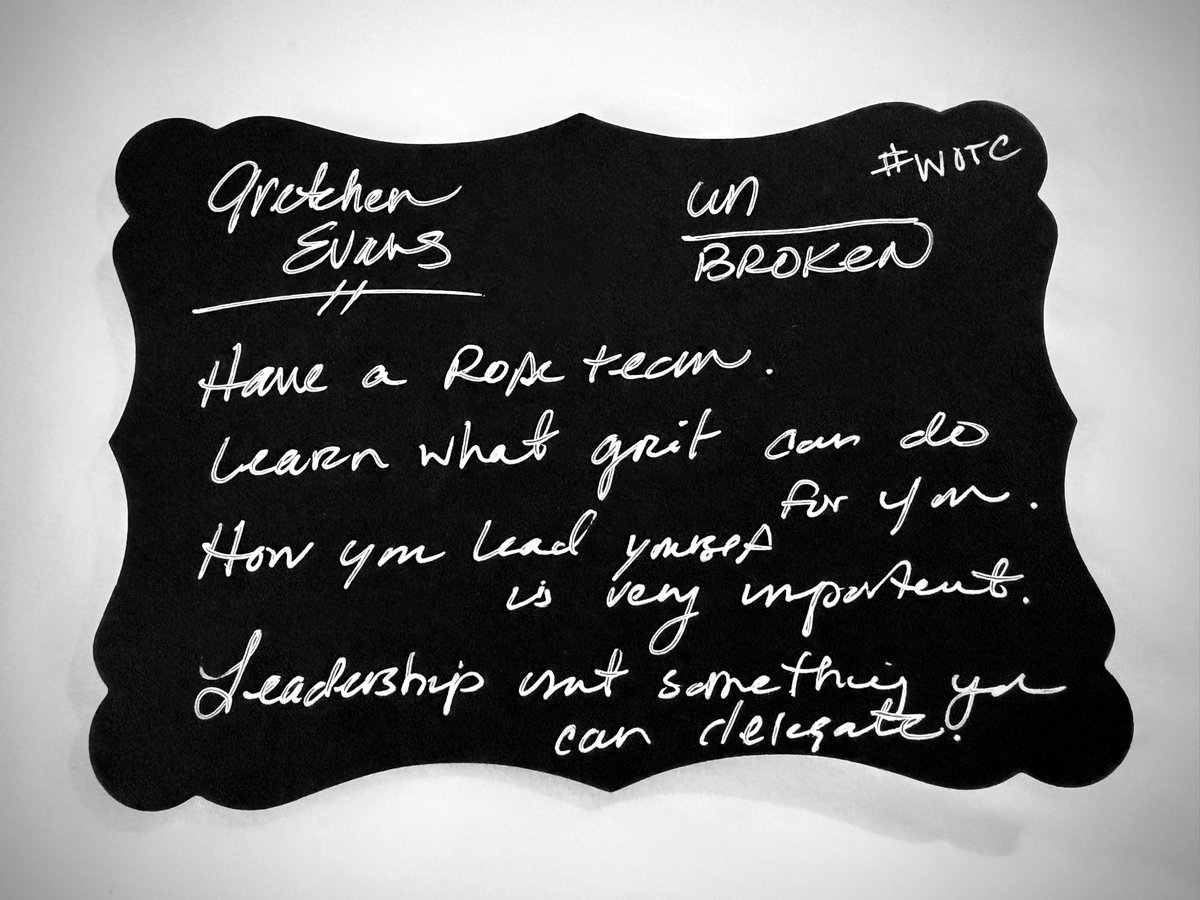 Gretchen
Evans
un
BROKEN
#WOTC
Have a Rope team.
Learn what grit can do
for you.
How you lead yourself
is very important.
Leadership isn't something you
can delegate.